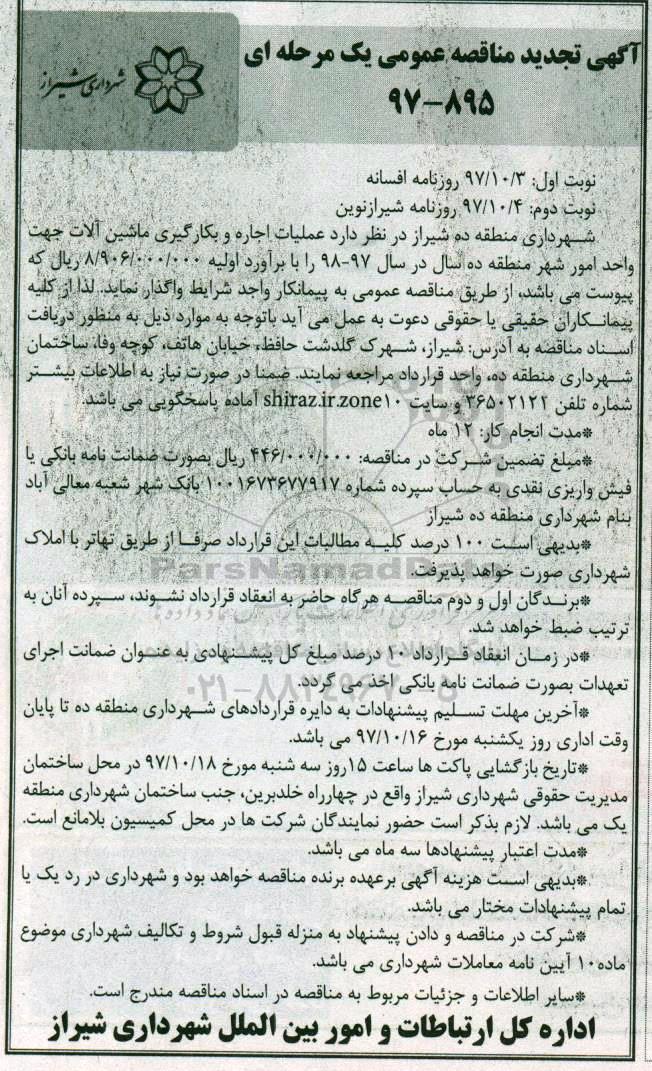 آگهی تجدید مناقصه عمومی یک مرحله ای
۹۷-۸۹۵
شهرداری شیراز
نوبت اول: ۹۷/۱۰/۳ روزنامه افسانه
نوبت دوم: ۹۷/۱۰/۴ روزنامه شیرازنوین
شهرداری منطقه ده شیراز در نظر دارد عملیات اجاره و بکارگیری ماشین آلات جهت
واحد امور شهر منطقه ده سال در سال ۹۷-۹۸ را با برآورد اولیه ۸/۹۰۶/۰۰۰/۰۰۰ ریال که
پیوست می باشد، از طریق مناقصه عمومی به پیمانکار واجد شرایط واگذار نماید. لذا از کلیه
پیمانکاران حقیقی یا حقوقی دعوت به عمل می آید باتوجه به موارد ذیل به منظور دریافت
اسناد مناقصه به آدرس: شیراز، شهرک گلدشت حافظ، خیابان هاتف، کوچه وفا، ساختمان
شهرداری منطقه ده، واحد قرارداد مراجعه نمایند. ضمنا در صورت نیاز به اطلاعات بیشتر
شماره تلفن ۳۶۵۰۲۱۲۱ و سایت shiraz.ir.zone۱۰ آماده پاسخگویی می باشد.
*مدت انجام کار: ۱۲ ماه
*مبلغ تضمین شرکت در مناقصه: ۴۴۶/۰۰۰/۰۰۰ ریال بصورت ضمانت نامه بانکی یا
فیش واریزی نقدی به حساب سپرده شماره ۱۰۰۱۶۷۳۶۷۷۹۱۷ بانک شهر شعبه معالی آباد
بنام شهرداری منطقه ده شیراز
*بدیهی است ۱۰۰ درصد کلیه مطالبات این قرارداد صرفا از طریق تهاتر با املاک
شهرداری صورت خواهد پذیرفت.
ParsNamadData
*برندگان اول و دوم مناقصه هرگاه حاضر به انعقاد قرارداد نشوند، سپرده آنان به
ترتیب ضبط خواهد شد.
*در زمان انعقاد قرارداد ۱۰ درصد مبلغ کل پیشنهادی به عنوان ضمانت اجرای
تعهدات بصورت ضمانت نامه بانکی اخذ می گردد.
*آخرین مهلت تسلیم پیشنهادات به دایره قراردادهای شهرداری منطقه ده تا پایان
وقت اداری روز یکشنبه مورخ ۹۷/۱۰/۱۶ می باشد.
*تاریخ بازگشایی پاکت ها ساعت ۱۵روز سه شنبه مورخ ۹۷/۱۰/۱۸ در محل ساختمان
مدیریت حقوقی شهرداری شیراز واقع در چهارراه خلدبرین، جنب ساختمان شهرداری منطقه
یک می باشد. لازم بذکر است حضور نمایندگان شرکت ها در محل کمیسیون بلامانع است.
*مدت اعتبار پیشنهادها سه ماه می باشد.
*بدیهی است هزینه آگهی برعهده برنده مناقصه خواهد بود و شهرداری در رد یک یا
تمام پیشنهادات مختار می باشد.
*شرکت در مناقصه و دادن پیشنهاد به منزله قبول شروط و تکالیف شهرداری موضوع
ماده۱۰ آیین نامه معاملات شهرداری می باشد.
*سایر اطلاعات و جزئیات مربوط به مناقصه در اسناد مناقصه مندرج است.
اداره کل ارتباطات و امور بین الملل شهرداری شیراز